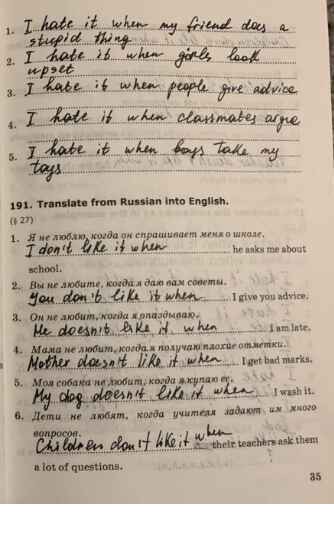 1. I hate it when my friend does a
stupid thing
2. I hate it when girls look
upset
3. I hate it when people give advice
4. I hate it when classmates argue
5. I hate it when boys take my
toys
191. Translate from Russian into English.
(§ 27)
1. Я не люблю, когда он спрашивает меня о школе.
I don't like it when he asks me about
school.
2. Вы не любите, когда я даю вам советы.
You don't like it when I give you advice.
3. Он не любит, когда я опаздываю.
He doesn't like it when I am late.
4. Мама не любит, когда я получаю плохие отметки.
Mother doesn't like it when I get bad marks.
5. Моя собака не любит, когда я купаю ее.
My dog doesn't like it when I wash it.
6. Дети не любят, когда учителя задают им много
вопросов.
Children don't like it when their teachers ask them
a lot of questions.
35